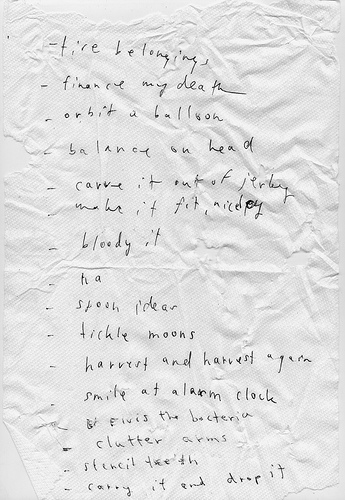 - fire belongings
- finance my death
- orbit a balloon
- balance on head
- carve it out of jerky
- make it fit, nicely
- bloody it
- ha
- spoon ideas
- tickle moons
- harvest and harvest again
- smile at alarm clock
- Elvis the bacteria
- clutter arms
- stencil teeth
- carry it and drop it